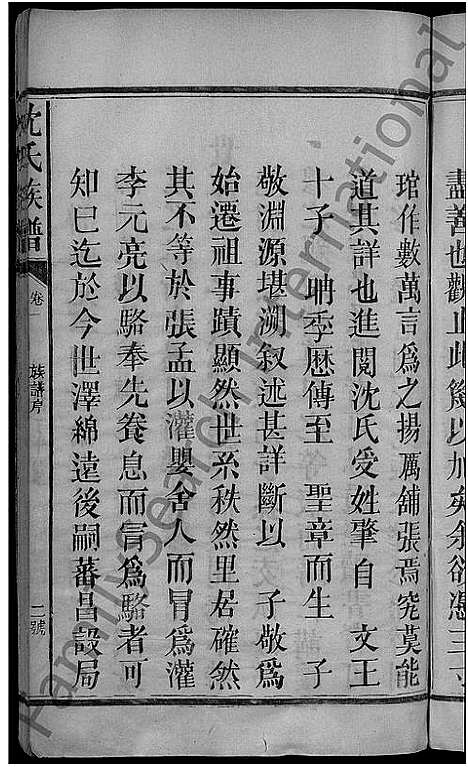 盡善也觀止此幾以加矣余欲憑三寸
琯作數萬言爲之揚厲舖張焉究莫能
道其詳也進閱沈氏受姓肇自　文王
十子　聃季歷傳至　聖章而生　子
敬淵源堪溯叙述甚詳斷以　子敬爲
始遷祖事蹟顯然世系秩然里居確然
其不等於張孟以灌嬰舍人而冒爲灌
李元亮以駱奉先養息而冒爲駱者可
知巳迄於今世澤綿遠後嗣蕃昌設局
沈氏族譜
卷一
族譜序
二號
FamilySearch International